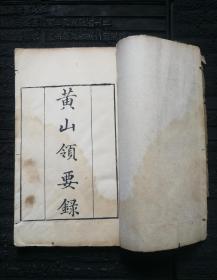 黄山領要錄